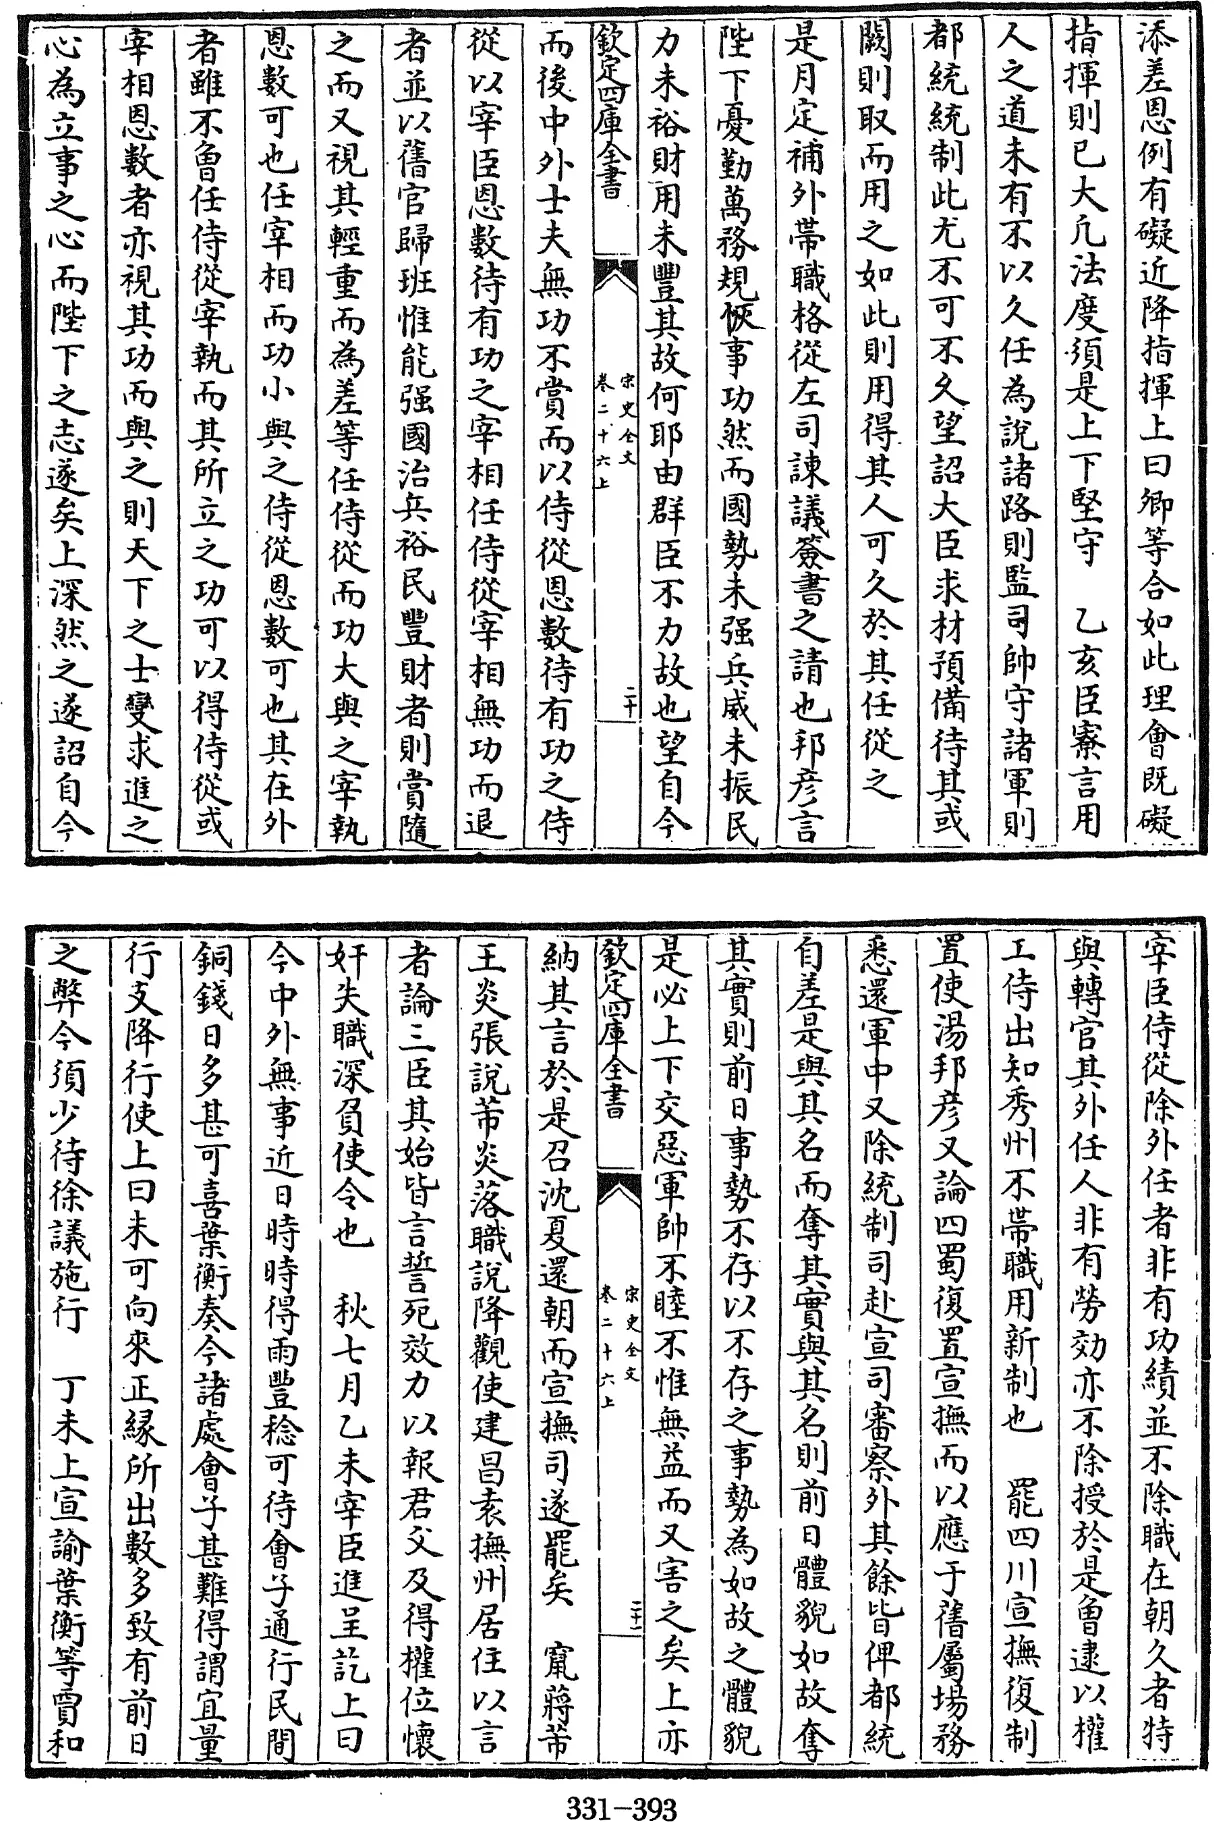 添差恩例有礙近降指揮上曰卿等合如此理會既礙
指揮則已大凡法度須是上下堅守　乙亥臣寮言用
人之道未有不以久任為說諸路則監司帥守諸軍則
都統統制此尤不可不久望詔大臣求材預備待其或
闕則取而用之如此則用得其人可久於其任從之
是月定補外帶職格從左司諫議簽書之請也邦彥言
陛下憂勤萬務規恢事功然而國勢未强兵威未振民
力未裕財用未豐其故何耶由群臣不力故也望自今
欽定四庫全書
宋史全文
卷二十六上
二十
而後中外士夫無功不賞而以侍從恩數待有功之侍
從以宰臣恩數待有功之宰相任侍從宰相無功而退
者並以舊官歸班惟能强國治兵裕民豐財者則賞隨
之而又視其輕重而為差等任侍從而功大與之宰執
恩數可也任宰相而功小與之侍從恩數可也其在外
者雖不魯任侍從宰執而其所立之功可以得侍從或
宰相恩數者亦視其功而與之則天下之士變求進之
心為立事之心而陛下之志遂矣上深然之遂詔自今
宰臣侍從除外任者非有功績並不除職在朝久者特
與轉官其外任人非有勞効亦不除授於是魯逮以權
工侍出知秀州不帶職用新制也　罷四川宣撫復制
置使湯邦彥又論四蜀復置宣撫而以應于舊屬場務
悉還軍中又除統制司赴宣司審察外其餘皆俾都統
自差是與其名而奪其實與其名則前日體貌如故奪
其實則前日事勢不存以不存之事勢為如故之體貌
是必上下交惡軍帥不睦不惟無益而又害之矣上亦
欽定四庫全書
宋史全文
卷二十六上
二十一
納其言於是召沈夏還朝而宣撫司遂罷矣　竄蔣芾
王炎張說芾炎落職說降觀使建昌袁撫州居住以言
者論三臣其始皆言誓死效力以報君父及得權位懷
奸失職深負使令也　秋七月乙未宰臣進呈訖上曰
今中外無事近日時時得雨豐稔可待會子通行民間
銅錢日多甚可喜葉衡奏今諸處會子甚難得謂宜量
行支降行使上曰未可向來正緣所出數多致有前日
之弊今須少待徐議施行　丁未上宣諭葉衡等賈和
331-393